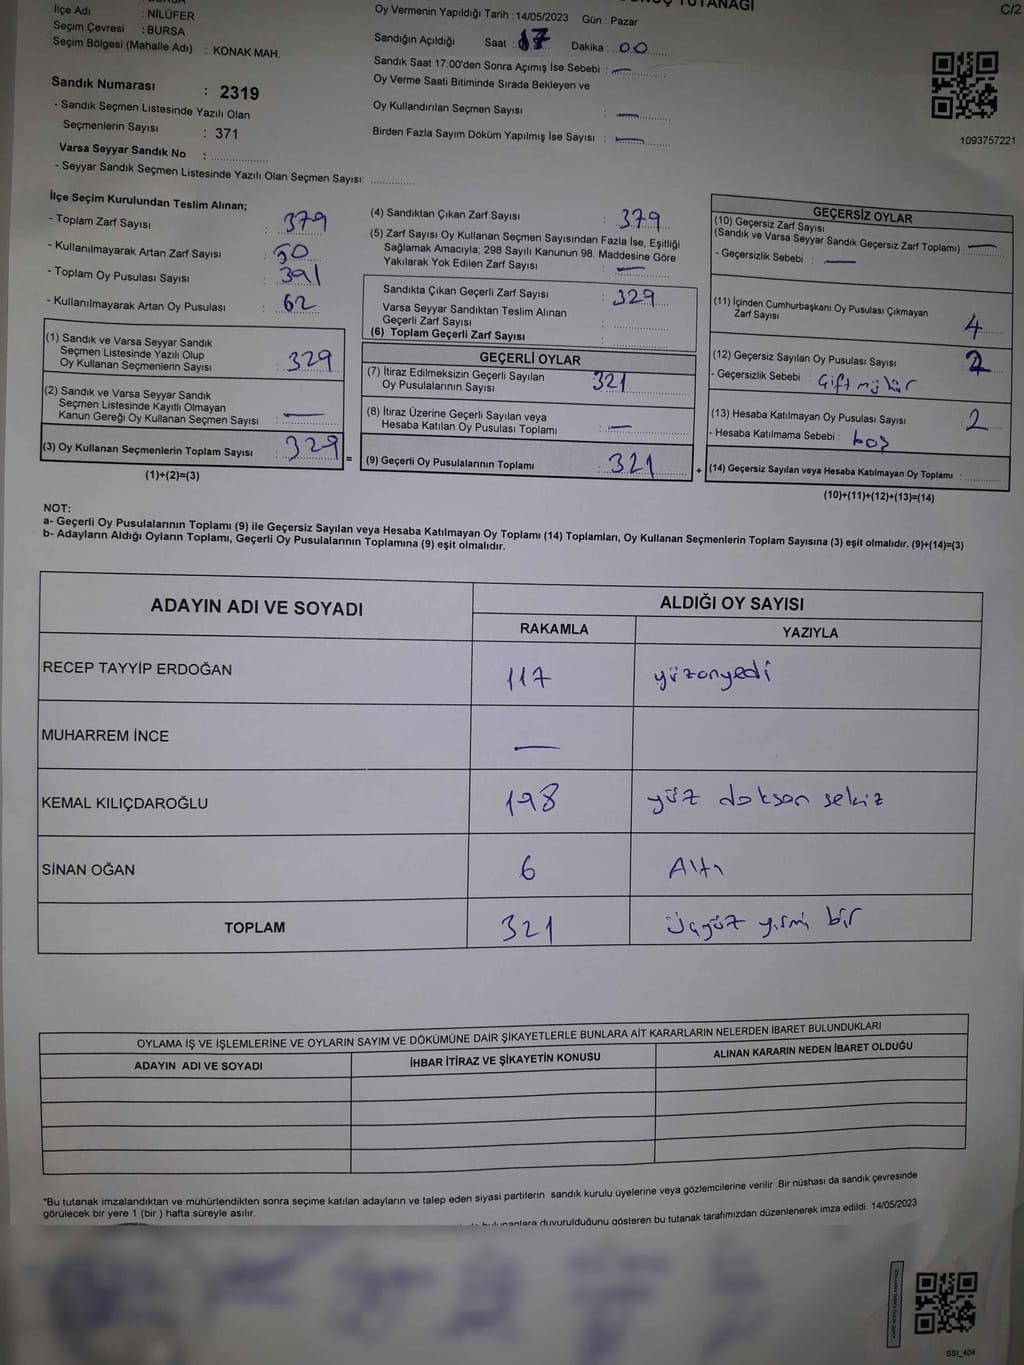 TUTANAĞI
C/2
İlçe Adı : NİLÜFER
Seçim Çevresi : BURSA
Seçim Bölgesi (Mahalle Adı) : KONAK MAH.
Oy Vermenin Yapıldığı Tarih : 14/05/2023 Gün : Pazar
Sandığın Açıldığı Saat : 17 Dakika : 00
Sandık Saat 17:00'den Sonra Açımış İse Sebebi : —
Oy Verme Saati Bitiminde Sırada Bekleyen ve
Oy Kullandırılan Seçmen Sayısı : —
Birden Fazla Sayım Döküm Yapılmış İse Sayısı : —
1093757221
Sandık Numarası : 2319
- Sandık Seçmen Listesinde Yazılı Olan
Seçmenlerin Sayısı : 371
Varsa Seyyar Sandık No : ................
- Seyyar Sandık Seçmen Listesinde Yazılı Olan Seçmen Sayısı: ............
İlçe Seçim Kurulundan Teslim Alınan;
- Toplam Zarf Sayısı : 379
- Kullanılmayarak Artan Zarf Sayısı : 50
- Toplam Oy Pusulası Sayısı : 391
- Kullanılmayarak Artan Oy Pusulası : 62
(1) Sandık ve Varsa Seyyar Sandık
Seçmen Listesinde Yazılı Olup
Oy Kullanan Seçmenlerin Sayısı : 329
(2) Sandık ve Varsa Seyyar Sandık
Seçmen Listesinde Kayıtlı Olmayan
Kanun Gereği Oy Kullanan Seçmen Sayısı : —
(3) Oy Kullanan Seçmenlerin Toplam Sayısı : 329 =
(1)+(2)=(3)
(4) Sandıktan Çıkan Zarf Sayısı : 379
(5) Zarf Sayısı Oy Kullanan Seçmen Sayısından Fazla İse, Eşitliği
Sağlamak Amacıyla; 298 Sayılı Kanunun 98. Maddesine Göre
Yakılarak Yok Edilen Zarf Sayısı : —
Sandıkta Çıkan Geçerli Zarf Sayısı : 329
Varsa Seyyar Sandıktan Teslim Alınan
Geçerli Zarf Sayısı : ................
(6) Toplam Geçerli Zarf Sayısı : ................
GEÇERLİ OYLAR
(7) İtiraz Edilmeksizin Geçerli Sayılan
Oy Pusulalarının Sayısı 321
(8) İtiraz Üzerine Geçerli Sayılan veya
Hesaba Katılan Oy Pusulası Toplamı : —
(9) Geçerli Oy Pusulalarının Toplamı : 321 +
GEÇERSİZ OYLAR
(10) Geçersiz Zarf Sayısı
(Sandık ve Varsa Seyyar Sandık Geçersiz Zarf Toplamı) : —
- Geçersizlik Sebebi : —
(11) İçinden Cumhurbaşkanı Oy Pusulası Çıkmayan
Zarf Sayısı : 4
(12) Geçersiz Sayılan Oy Pusulası Sayısı : 2
- Geçersizlik Sebebi : Çift mühür
(13) Hesaba Katılmayan Oy Pusulası Sayısı : 2
- Hesaba Katılmama Sebebi : boş
(14) Geçersiz Sayılan veya Hesaba Katılmayan Oy Toplamı : ............
(10)+(11)+(12)+(13)=(14)
NOT:
a- Geçerli Oy Pusulalarının Toplamı (9) ile Geçersiz Sayılan veya Hesaba Katılmayan Oy Toplamı (14) Toplamları, Oy Kullanan Seçmenlerin Toplam Sayısına (3) eşit olmalıdır. (9)+(14)=(3)
b- Adayların Aldığı Oyların Toplamı, Geçerli Oy Pusulalarının Toplamına (9) eşit olmalıdır.
ADAYIN ADI VE SOYADI
ALDIĞI OY SAYISI
RAKAMLA YAZIYLA
RECEP TAYYİP ERDOĞAN 117 yüzonyedi
MUHARREM İNCE —
KEMAL KILIÇDAROĞLU 198 yüz doksan sekiz
SİNAN OĞAN 6 Altı
TOPLAM 321 üçyüz yirmi bir
OYLAMA İŞ VE İŞLEMLERİNE VE OYLARIN SAYIM VE DÖKÜMÜNE DAİR ŞİKAYETLERLE BUNLARA AİT KARARLARIN NELERDEN İBARET BULUNDUKLARI
ADAYIN ADI VE SOYADI İHBAR İTİRAZ VE ŞİKAYETİN KONUSU ALINAN KARARIN NEDEN İBARET OLDUĞU
*Bu tutanak imzalandıktan ve mühürlendikten sonra seçime katılan adayların ve talep eden siyasi partilerin sandık kurulu üyelerine veya gözlemcilerine verilir .Bir nüshası da sandık çevresinde
görülecek bir yere 1 (bir ) hafta süreyle asılır.
bulunanlara duyurulduğunu gösteren bu tutanak tarafımızdan düzenlenerek imza edildi. 14/05/2023
SSI_404